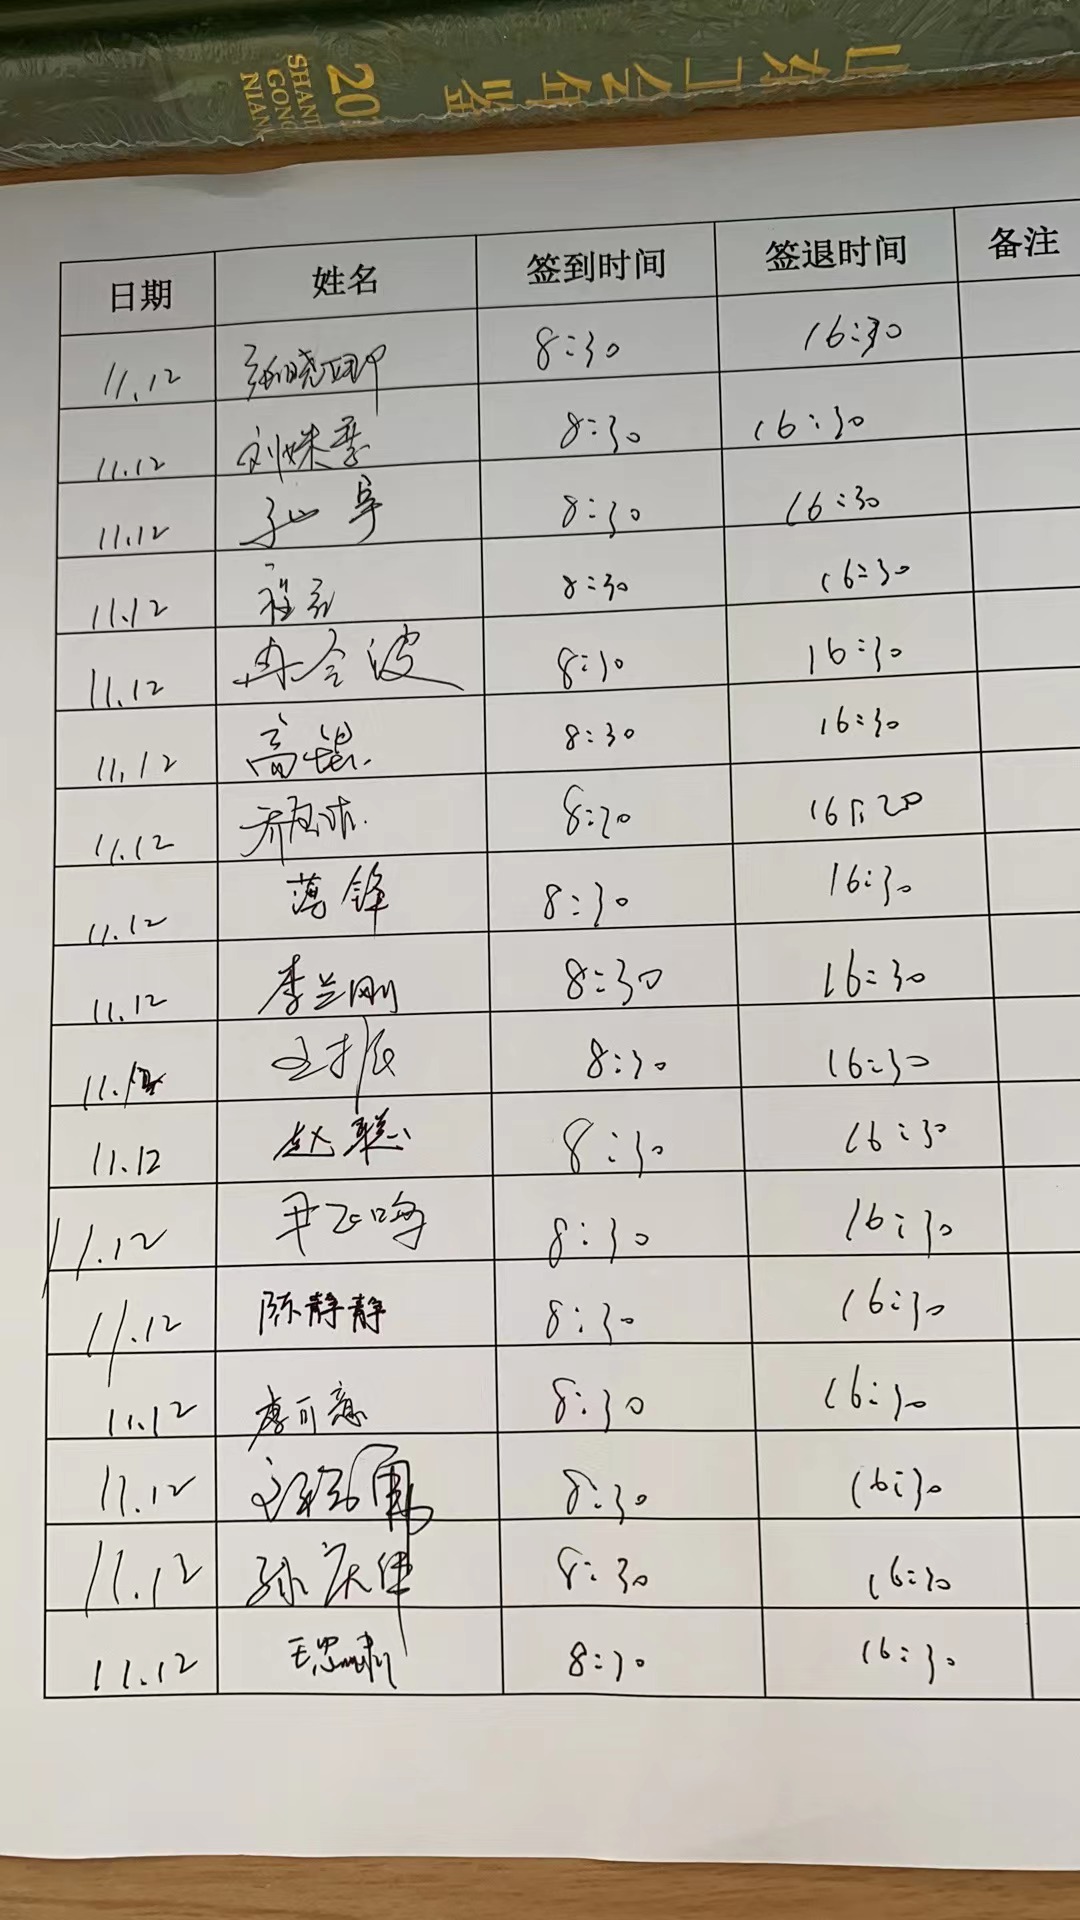 山东工会年鉴
20
SHAND
GONG
NIAN
日期 姓名 签到时间 签退时间 备注
11.12 8:30 16:30
11.12 8:30 16:30
11.12 8:30 16:30
11.12 8:30 16:30
11.12 冉令波 8:30 16:30
11.12 高 8:30 16:30
11.12 16:20
11.12 薄锋 8:30 16:30
11.12 李兰刚 8:30 16:30
王振 8:30 16:30
11.12 赵聪 8:30 16:30
11.12 尹飞鸣 8:30 16:30
11.12 陈静静 8:30 16:30
11.12 唐可意 8:30 16:30
11.12 8:30 16:30
11.12 孙庆伟 8:30 16:30
11.12 王思 8:30 16:30